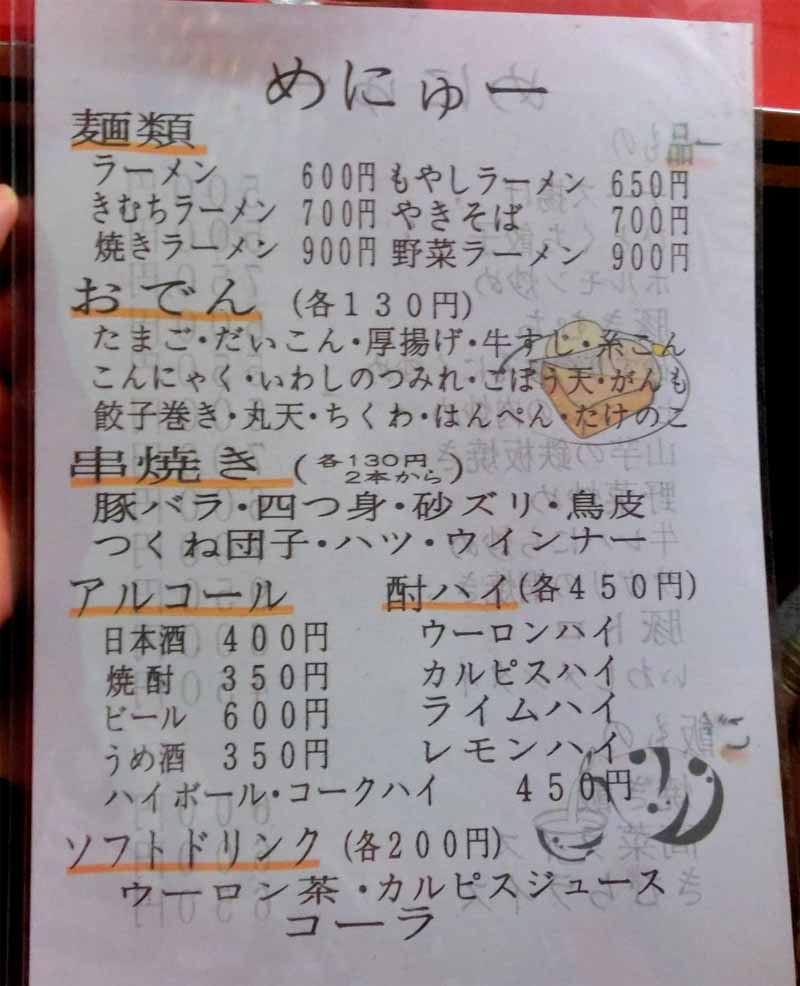 めにゅー
麺類
ラーメン 600円 もやしラーメン 650円
きむちラーメン 700円 やきそば 700円
焼きラーメン 900円 野菜ラーメン 900円
おでん (各130円)
たまご・だいこん・厚揚げ・牛すじ・糸こん
こんにゃく・いわしのつみれ・ごぼう天・がんも
餃子巻き・丸天・ちくわ・はんぺん・たけのこ
串焼き (各130円 2本から)
豚バラ・四つ身・砂ズリ・鳥皮
つくね団子・ハツ・ウインナー
アルコール 酎ハイ(各450円)
日本酒 400円 ウーロンハイ
焼酎 350円 カルピスハイ
ビール 600円 ライムハイ
うめ酒 350円 レモンハイ
ハイボール・コークハイ 450円
ソフトドリンク (各200円)
ウーロン茶・カルピスジュース
コーラ